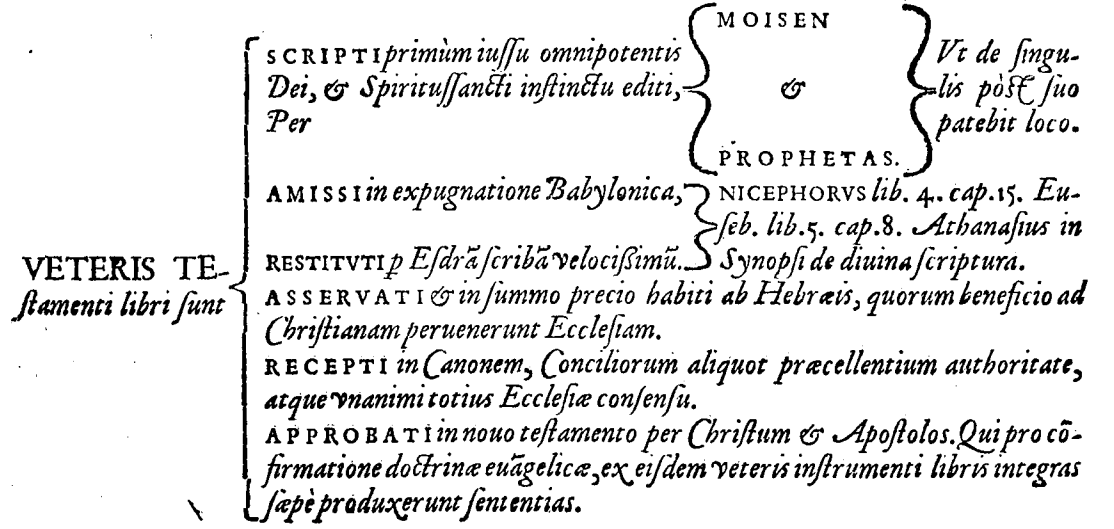 VETERIS TE-
ſtamenti libri ſunt
SCRIPTI primùm iuſſu omnipotentis
Dei, & Spirituſſancti inſtinctu editi,
Per
MOISEN
&
PROPHETAS.
Vt de ſingu-
lis pòſt ſuo
patebit loco.
AMISSI in expugnatione Babylonica,
RESTITVTI p Eſdrā ſcribā velociſsimū.
NICEPHORVS lib. 4. cap.15. Eu-
ſeb. lib.5. cap.8. Athanaſius in
Synopſi de diuina ſcriptura.
ASSERVATI & in ſummo precio habiti ab Hebræis, quorum beneficio ad
Chriſtianam peruenerunt Eccleſiam.
RECEPTI in Canonem, Conciliorum aliquot præcellentium authoritate,
atque vnanimi totius Eccleſiæ conſenſu.
APPROBATI in nouo teſtamento per Chriſtum & Apoſtolos. Qui pro cō-
firmatione doctrinæ euāgelicæ, ex eiſdem veteris inſtrumenti libris integras
ſæpè produxerunt ſententias.